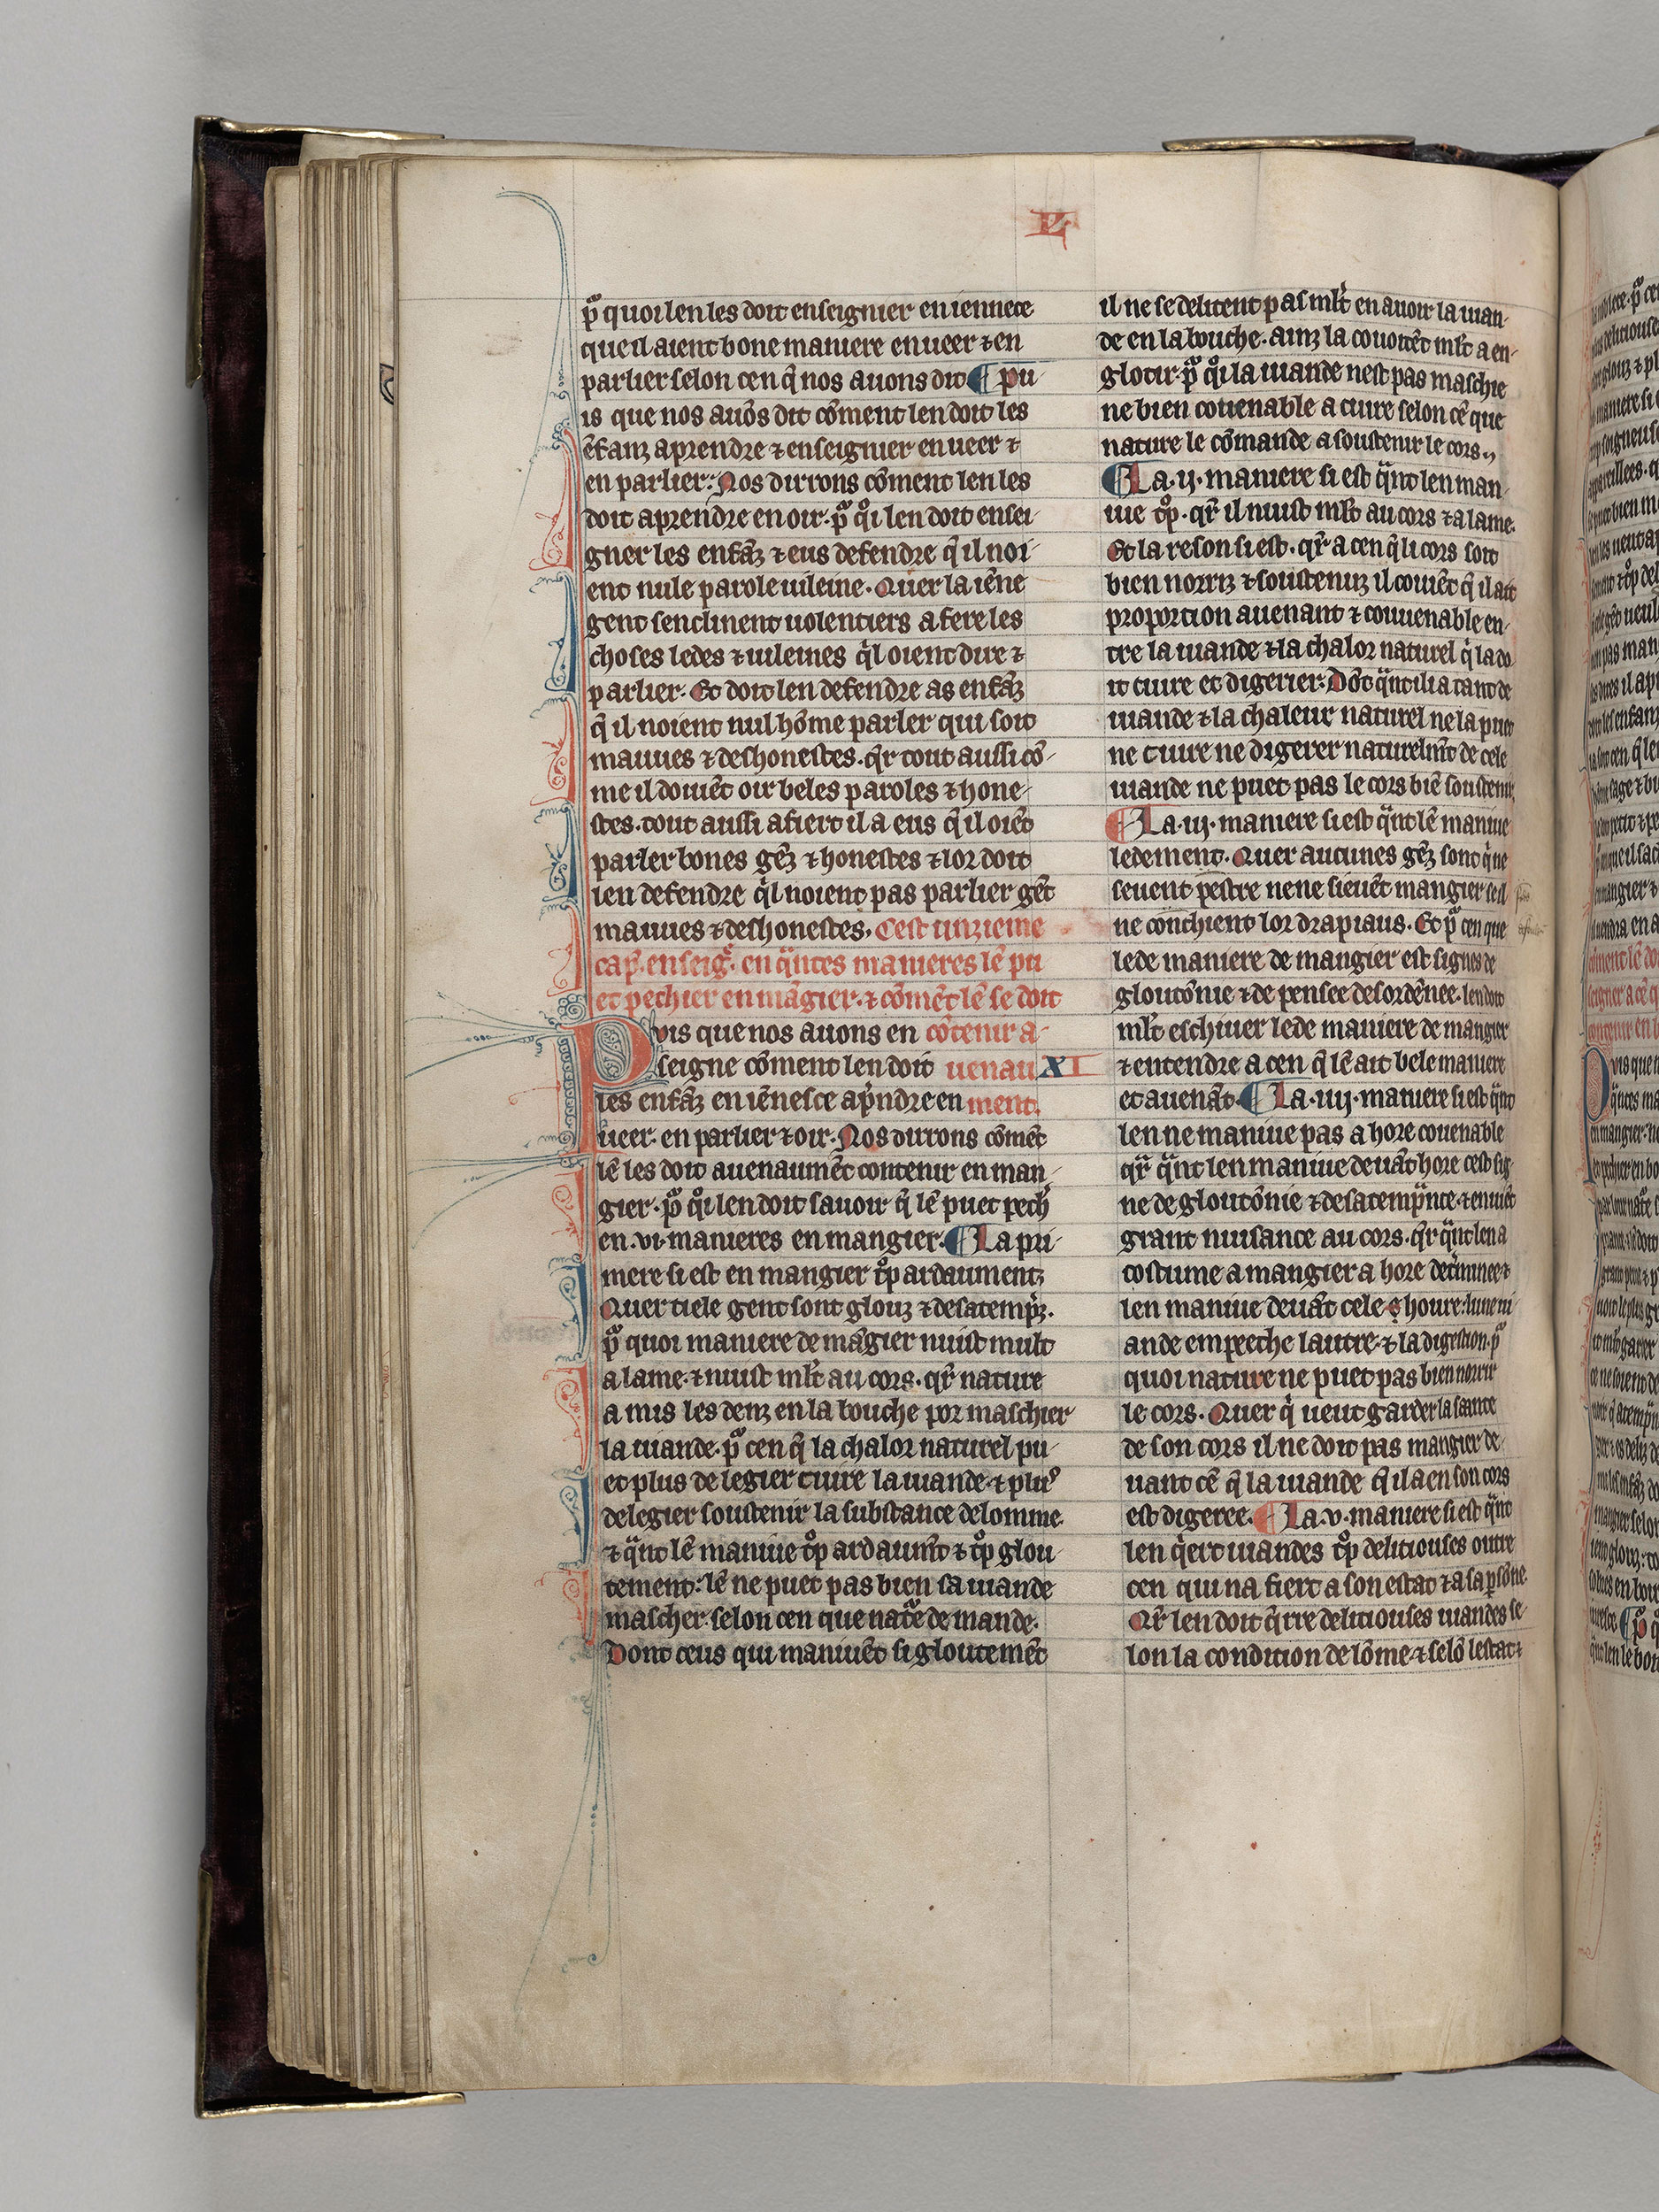 L
pͣ quoi len les doit enseignier en iennece
que il aient bone maniere en ueer ⁊ en
parlier selon cen q̄ nos auons dit ¶ pu-
is que nos auōs dit cōment len doit les
ēfanz aprendre ⁊ enseignier en ueer ⁊
en parlier: Nos dirrons cōment len les
doit aprendre en oir. pͣ qͦi len doit ensei-
gner les enfāz ⁊ eus defendre q̄ il noi-
ent nule parole uileine. Quer la iēne
gent senclinent uolentiers a fere les
choses ledes ⁊ uileines qͥl oient dire ⁊
parlier. Et doit len defendre as enfāz
q̄ il noient nul hōme parler qui soit
mauues ⁊ deshonestes. qr̄ tout aussi cō-
me il doiuēt oir beles paroles ⁊ hone-
stes. tout aussi afiert il a eus q̄ il oiēt
parler bones gēz ⁊ honestes ⁊ lor doit
len defendre qͥl noient pas parlier gēt
mauues ⁊ deshonestes. Cest unzieme
cap̄. enseiḡ. en qͣntes manieres lē pu
et pechier en māgier. ⁊ cōmēt lē se doit
Puis que nos auons en cōtenir a-
seigne cōment len doit uenau XI
les enfāz en iēnesce apͥndre en ment.
ueer. en parlier ⁊ oir. Nos dirrons cōmēt
lē les doit auenaumēt contenir en man-
gier. pͣ qͦi len doit sauoir q̄ lē puet pech̄
en .vi. manieres en mangier. ¶ La pri-
mere si est en mangier tͦp ardaument;
Quer tiele gent sont glouz ⁊ desatemp̄z.
pͣ quoi maniere de māgier nuist mult
a lame. ⁊ nuist ml̄t au cors. qr̄ nature
a mis les denz en la bouche por maschier
la uiande. pͣ cen q̄ la chalor naturel pu-
et plus de legier cuire la uiande. ⁊ plꝰ
de legier soustenir la substance de lomme.
⁊ qͣnt lē maniue tͦp ardaum̄t ⁊ tͦp glou-
tement: lē ne puet pas bien sa uiande
mascher. selon cen que natͣe demande.
Dont ceus qui maniuēt si gloutemēt
il ne se delitent pas ml̄t en auoir la uian-
de en la bouche. ainz la couoitēt ml̄t a en-
glotir. pͣ qͦi la uiande nest pas maschie
ne bien couenable a cuire selon cē que
nature le cōmande a soustenir le cors.,
¶ La .ij. maniere si est qͣnt len man-
iue tͦp. qr̄ il nuist ml̄t au cors ⁊ a lame.
Et la reson si est. qr̄ a cen q̄ li cors soit
bien norriz ⁊ soustenuz il couiēt q̄ il ait
proporcion auenant ⁊ couuenable en-
tre la uiande ⁊ la chalor naturel qͥ la do
it cuire et digerier. Dōt qͣnt il i a tant de
uiande ⁊ la chaleur naturel ne la puet
ne cuire ne digerer naturelm̄t de cele
uiande ne puet pas le cors biē soustenir.
¶ La .iij. maniere si est qͣnt lē maniue
ledement. Quer aucunes gēz sont qͥ ne
seuent pestre ne ne sieuēt mangier se il
ne conchient lor drapiaus. Et pͣ cen que
lede maniere de mangier est signes de
gloutōnie ⁊ de pensee desordēnee. len doit
ml̄t eschiuer lede maniere de mangier
⁊ entendre a cen q̄ lē ait bele maniere
et auenāt. ¶ La .iiij. maniere si est qͣnt
len ne maniue pas a hore couenable
qr̄ qͣnt len maniue deuāt hore cest sig-
ne de gloutōnie ⁊ desatempͣnce. ⁊ en uiēt
grant nuisance au cors. qr̄ qͣnt len a
costume a mangier a hore det̄minee ⁊
len maniue deuāt cele houre: lune ui-
ande empeeche lautre. ⁊ la digestion. pͣ
quoi nature ne puet pas bien norrir
le cors. Quer qͥ ueut garder la sante
de son cors il ne doit pas mangier de-
uant cē q̄ la uiande q̄ il a en son cors
est digeree. ¶ La .v. maniere si est qͣnt
len qͥert uiandes tͦp delitiouses outre
cen qui nafiert a son estat ⁊ a sa ꝑsōne.
Qr̄ len doit q̄rre delitiouses uiandes se-
lon la condition de lōme ⁊ selō lestat ⁊